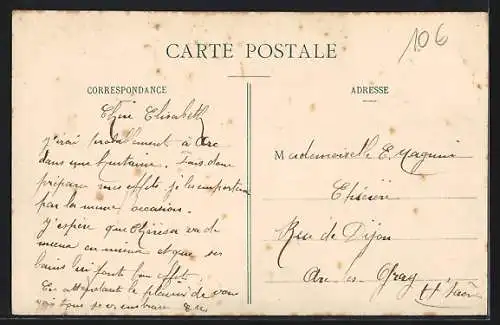 106
CARTE POSTALE
CORRESPONDANCE
Chère Elisabeth
J'irai probablement à Arc
dans une huitaine. Fais donc
préparer mes effets je les emporterai
par la même occasion.
J'espère que Thérèse va de
mieux en mieux et que ses
bains lui font bon effet.
En attendant le plaisir de vous
voir tous je vs embrasse
ADRESSE
Mademoiselle E. Magnin
Epicerie
Rue de Dijon
Arc-les-Gray
Hte Saône